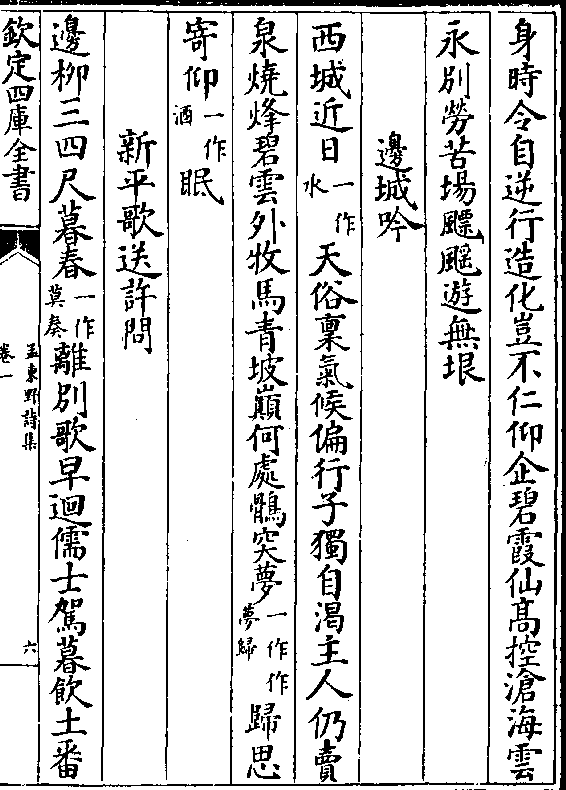 身時令自逆行造化豈不仁仰企碧霞仙髙控滄海雲
永別勞苦場飃飖遊無垠
邊城吟
西城近日一作水天俗稟氣候偏行子獨自渴主人仍賣
泉燒烽碧雲外牧馬青坡巔何處鶻突夢一作作夢歸歸思
寄仰一作酒眠
新平歌送許問
邊柳三四尺暮春一作莫奏離別歌早迴儒士駕暮飲土番
欽定四庫全書
孟東野詩集
卷一
六